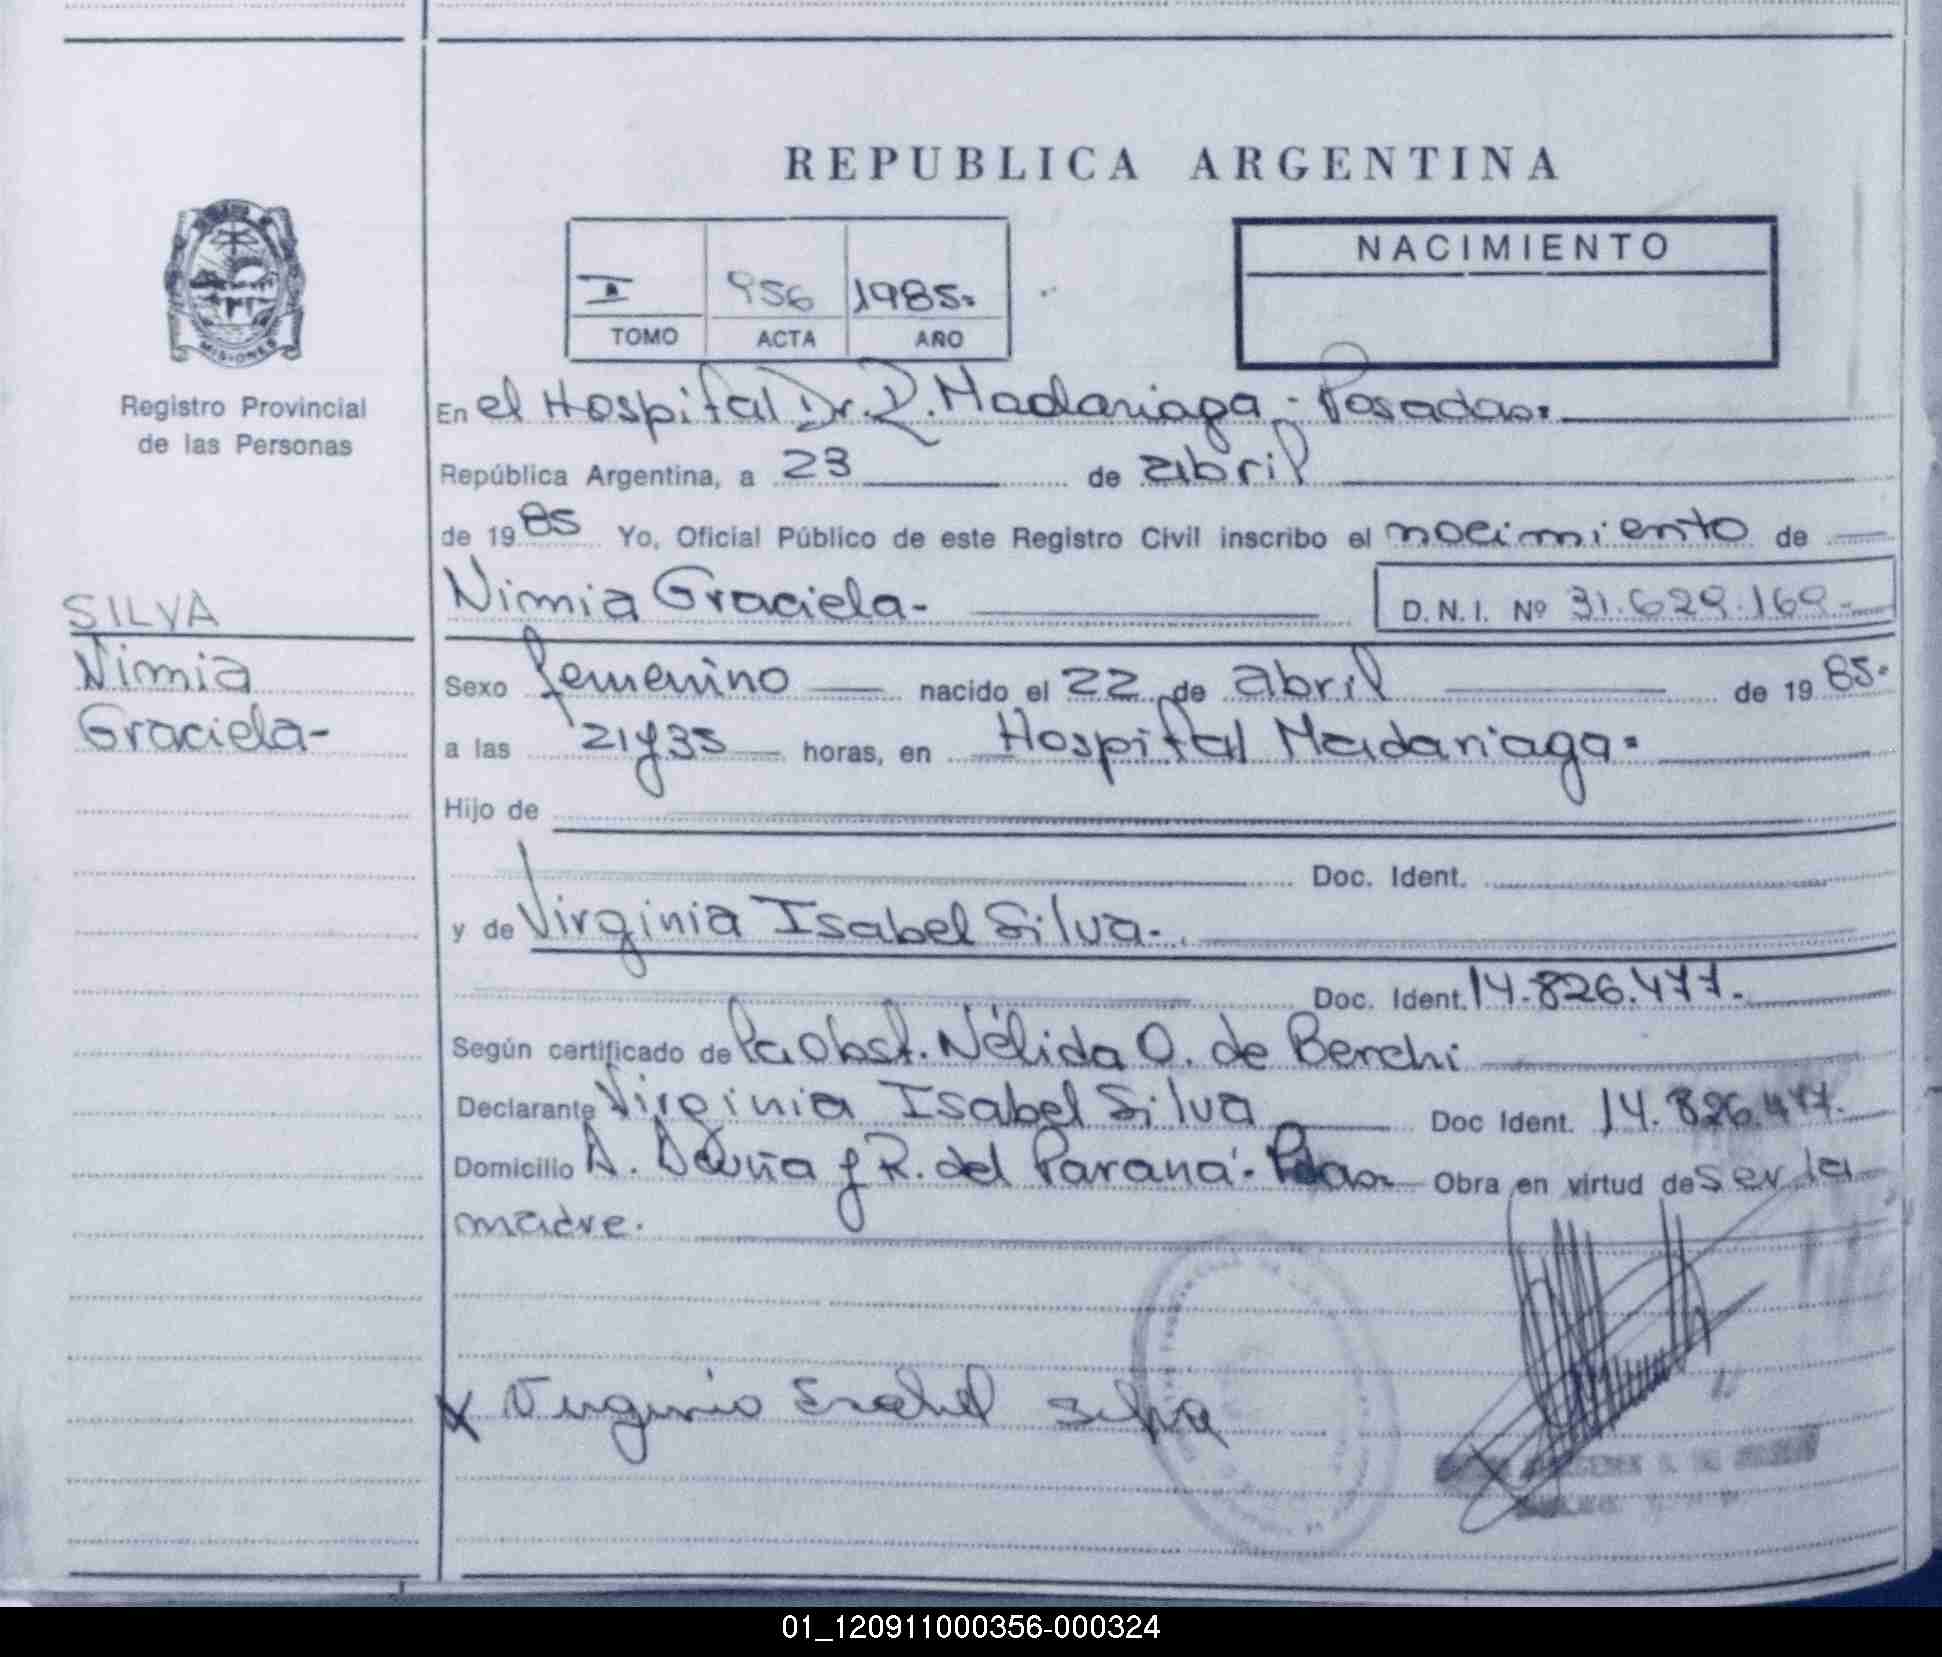 REPUBLICA ARGENTINA
NACIMIENTO
I 956 1985.
TOMO ACTA AÑO
MISIONES
Registro Provincial
de las Personas
En el Hospital Dr. R. Madariaga - Posadas.
República Argentina, a 23 de abril
de 1985 Yo, Oficial Público de este Registro Civil inscribo el nacimiento de
Nimia Graciela- D.N.I. Nº 31.629.169.-
SILVA
Nimia
Graciela-
Sexo femenino nacido el 22 de abril de 1985.
a las 21 y 35 horas, en Hospital Madariaga.
Hijo de
Doc. Ident.
y de Virginia Isabel Silva.
Doc. Ident. 14.826.477.
Según certificado de la Obst. Nélida O. de Berchi
Declarante Virginia Isabel Silva Doc Ident. 14.826.477.
Domicilio A. y R. del Paraná - Obra en virtud de ser la
madre.
x Virginia Isabel Silva
01_120911000356-000324